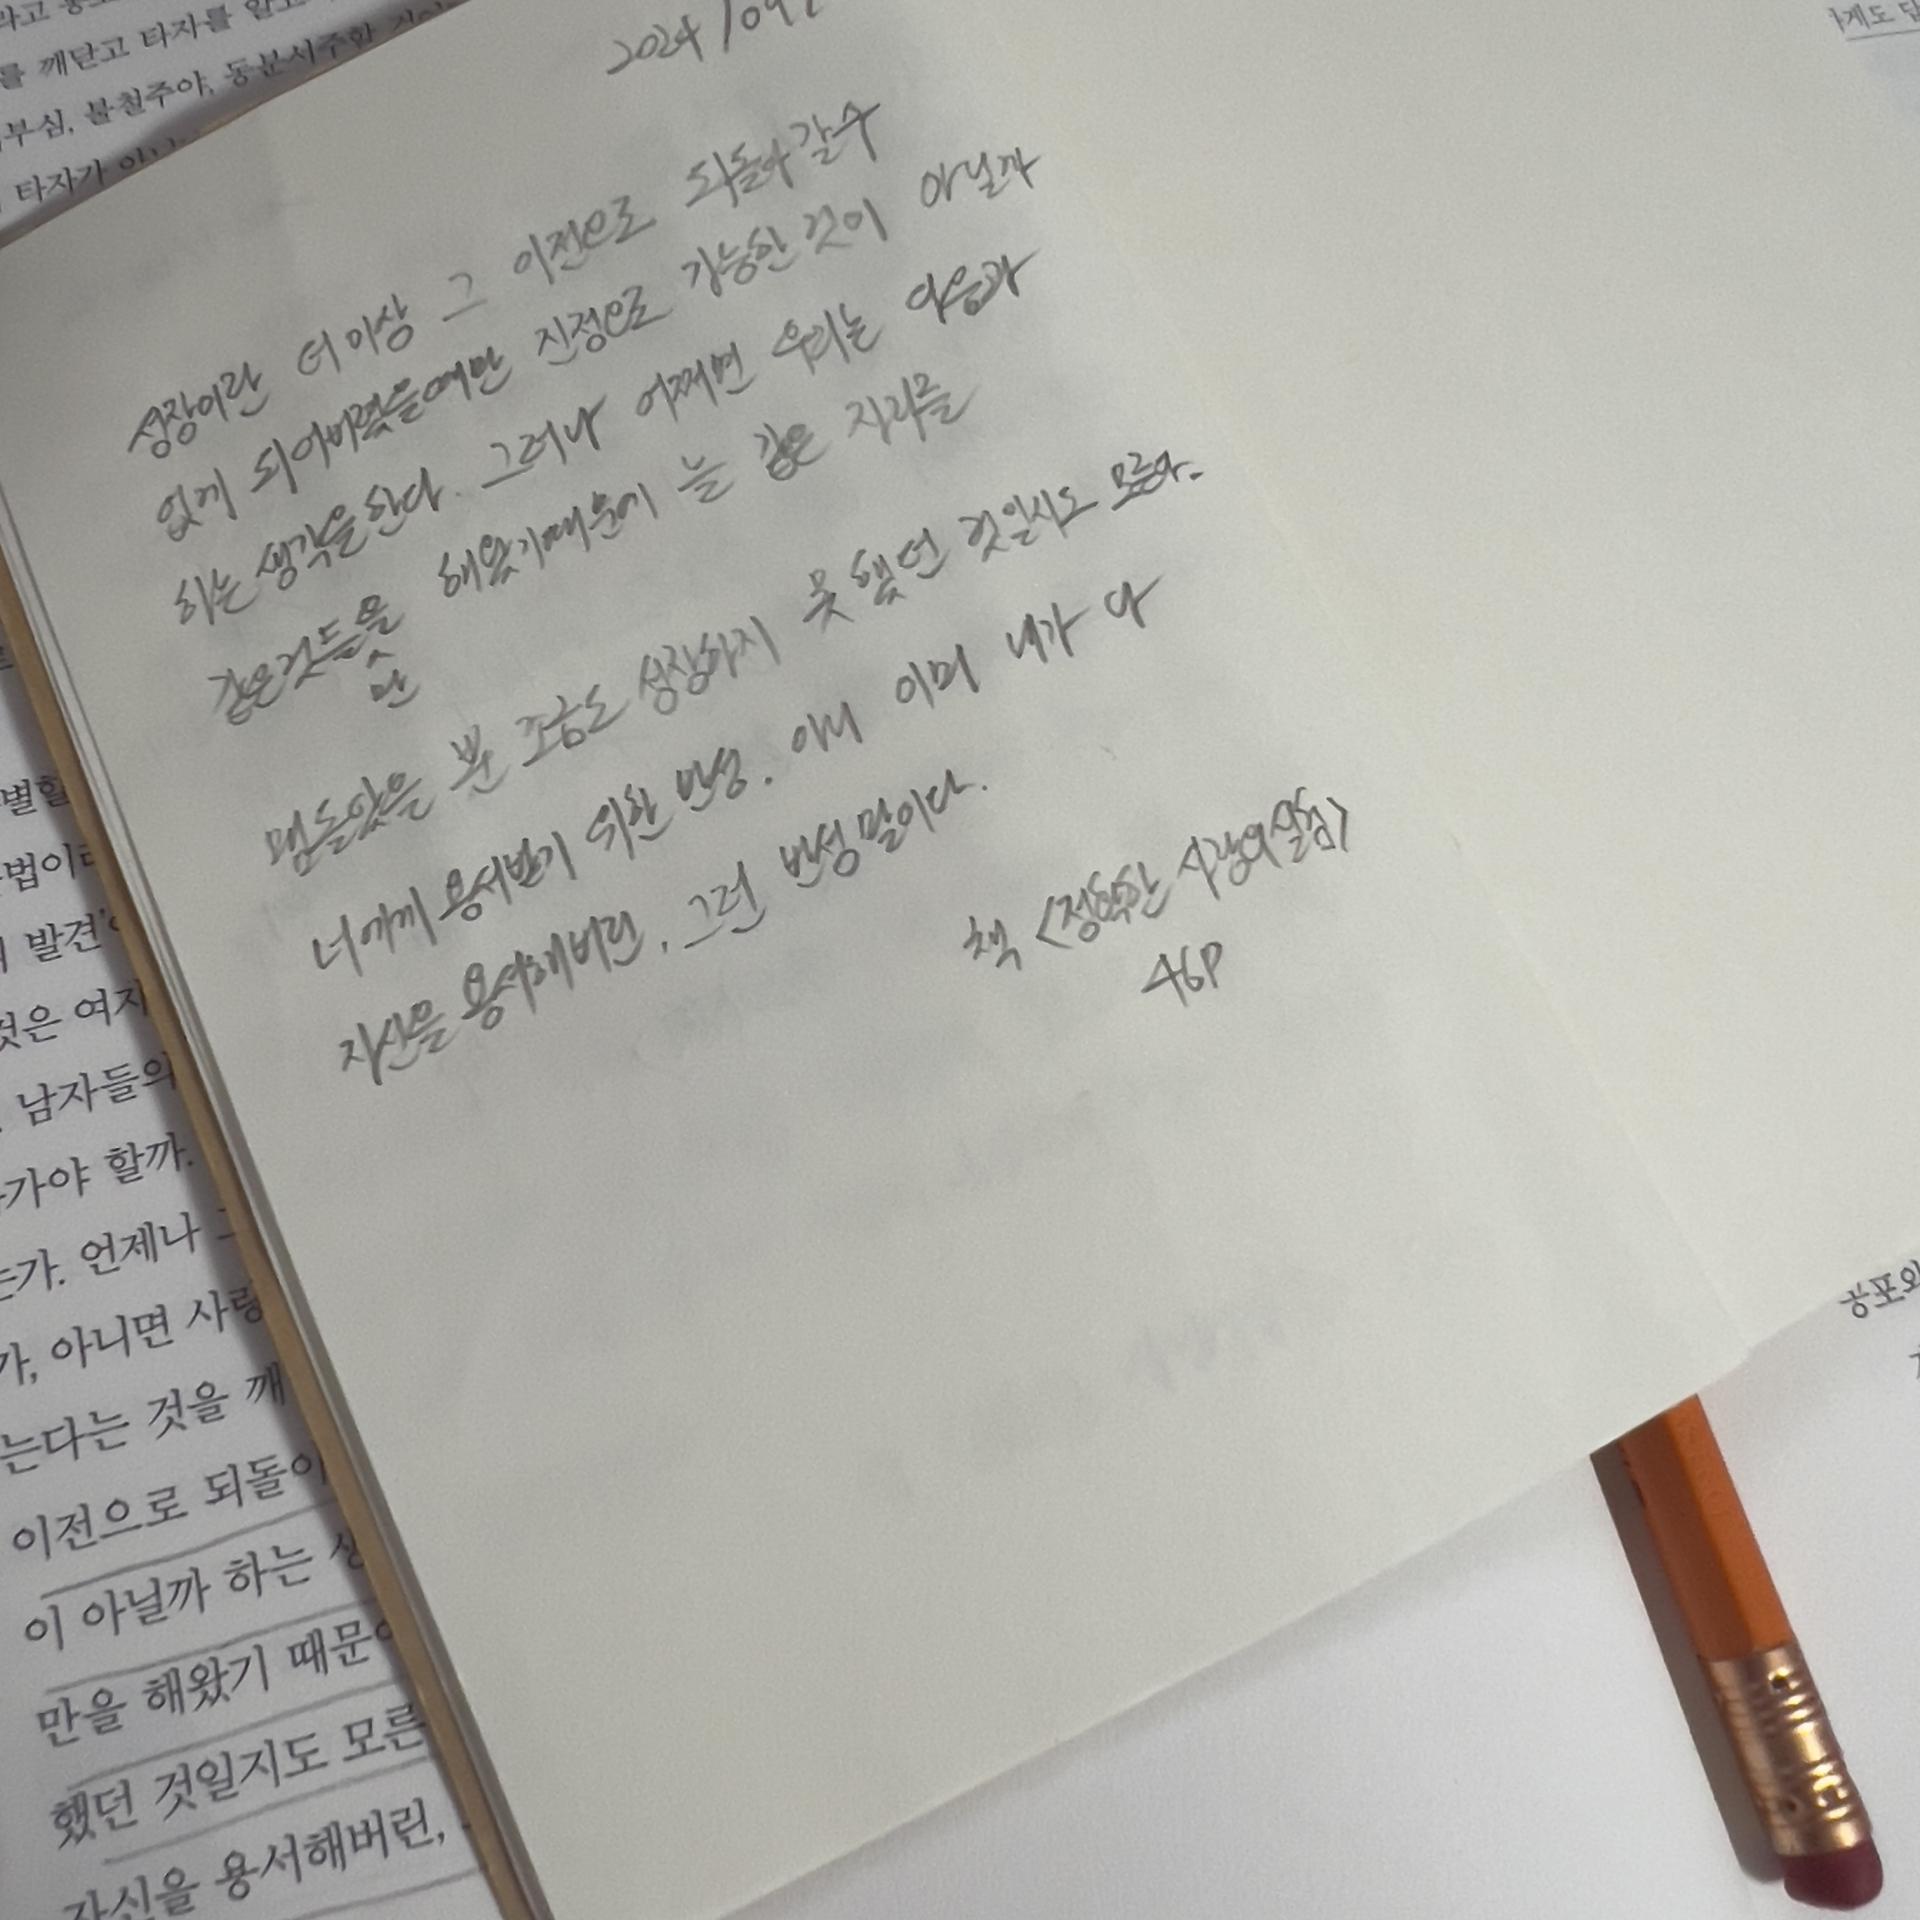 라고
를 깨닫고 타자를 알고
부심, 불철주야, 동분서주한
타자가
2024/09
성장이란 더이상 그 이전으로 되돌아갈수
없게 되어버렸을때만 진정으로 가능한것이 아닐까
하는 생각을한다. 그러나 어쩌면 우리는 다음과
같은것들을 해왔기때문에 늘 같은 자리를
만
맴돌았을 뿐 조금도 성장하지 못했던 것일지도 모른다.
너에게 용서받기 위한 반성. 아니 이미 내가 나
자신을 용서해버린, 그런 반성 말이다.
책 <정확한 사랑의실험>
46P
별할
법이다
발견'
것은 여자
남자들의
가야 할까.
는가. 언제나
가, 아니면 사랑
는다는 것을 깨
이전으로 되돌아
이 아닐까 하는 생
만을 해왔기 때문에
했던 것일지도 모른
자신을 용서해버린,
게도 답
공포와